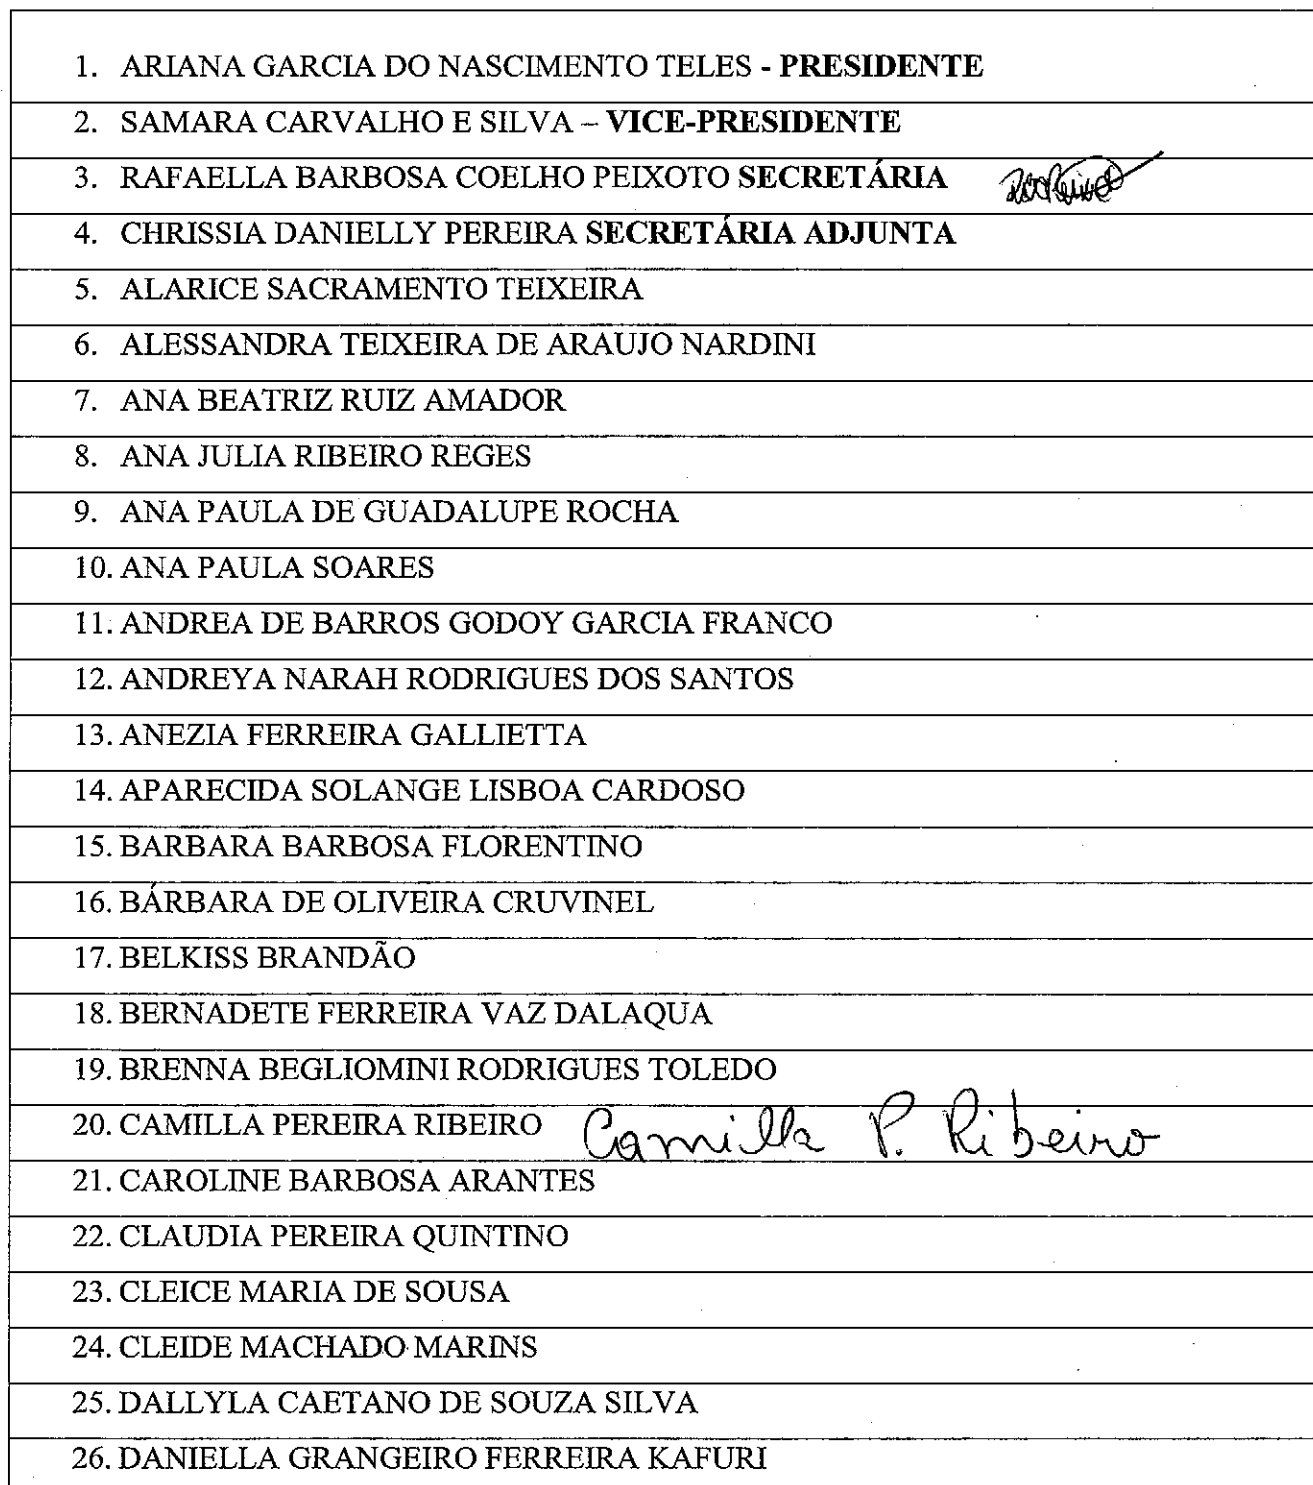 1. ARIANA GARCIA DO NASCIMENTO TELES - PRESIDENTE
2. SAMARA CARVALHO E SILVA – VICE-PRESIDENTE
3. RAFAELLA BARBOSA COELHO PEIXOTO SECRETÁRIA
4. CHRISSIA DANIELLY PEREIRA SECRETÁRIA ADJUNTA
5. ALARICE SACRAMENTO TEIXEIRA
6. ALESSANDRA TEIXEIRA DE ARAUJO NARDINI
7. ANA BEATRIZ RUIZ AMADOR
8. ANA JULIA RIBEIRO REGES
9. ANA PAULA DE GUADALUPE ROCHA
10. ANA PAULA SOARES
11. ANDREA DE BARROS GODOY GARCIA FRANCO
12. ANDREYA NARAH RODRIGUES DOS SANTOS
13. ANEZIA FERREIRA GALLIETTA
14. APARECIDA SOLANGE LISBOA CARDOSO
15. BARBARA BARBOSA FLORENTINO
16. BÁRBARA DE OLIVEIRA CRUVINEL
17. BELKISS BRANDÃO
18. BERNADETE FERREIRA VAZ DALAQUA
19. BRENNA BEGLIOMINI RODRIGUES TOLEDO
20. CAMILLA PEREIRA RIBEIRO Camilla P. Ribeiro
21. CAROLINE BARBOSA ARANTES
22. CLAUDIA PEREIRA QUINTINO
23. CLEICE MARIA DE SOUSA
24. CLEIDE MACHADO MARINS
25. DALLYLA CAETANO DE SOUZA SILVA
26. DANIELLA GRANGEIRO FERREIRA KAFURI